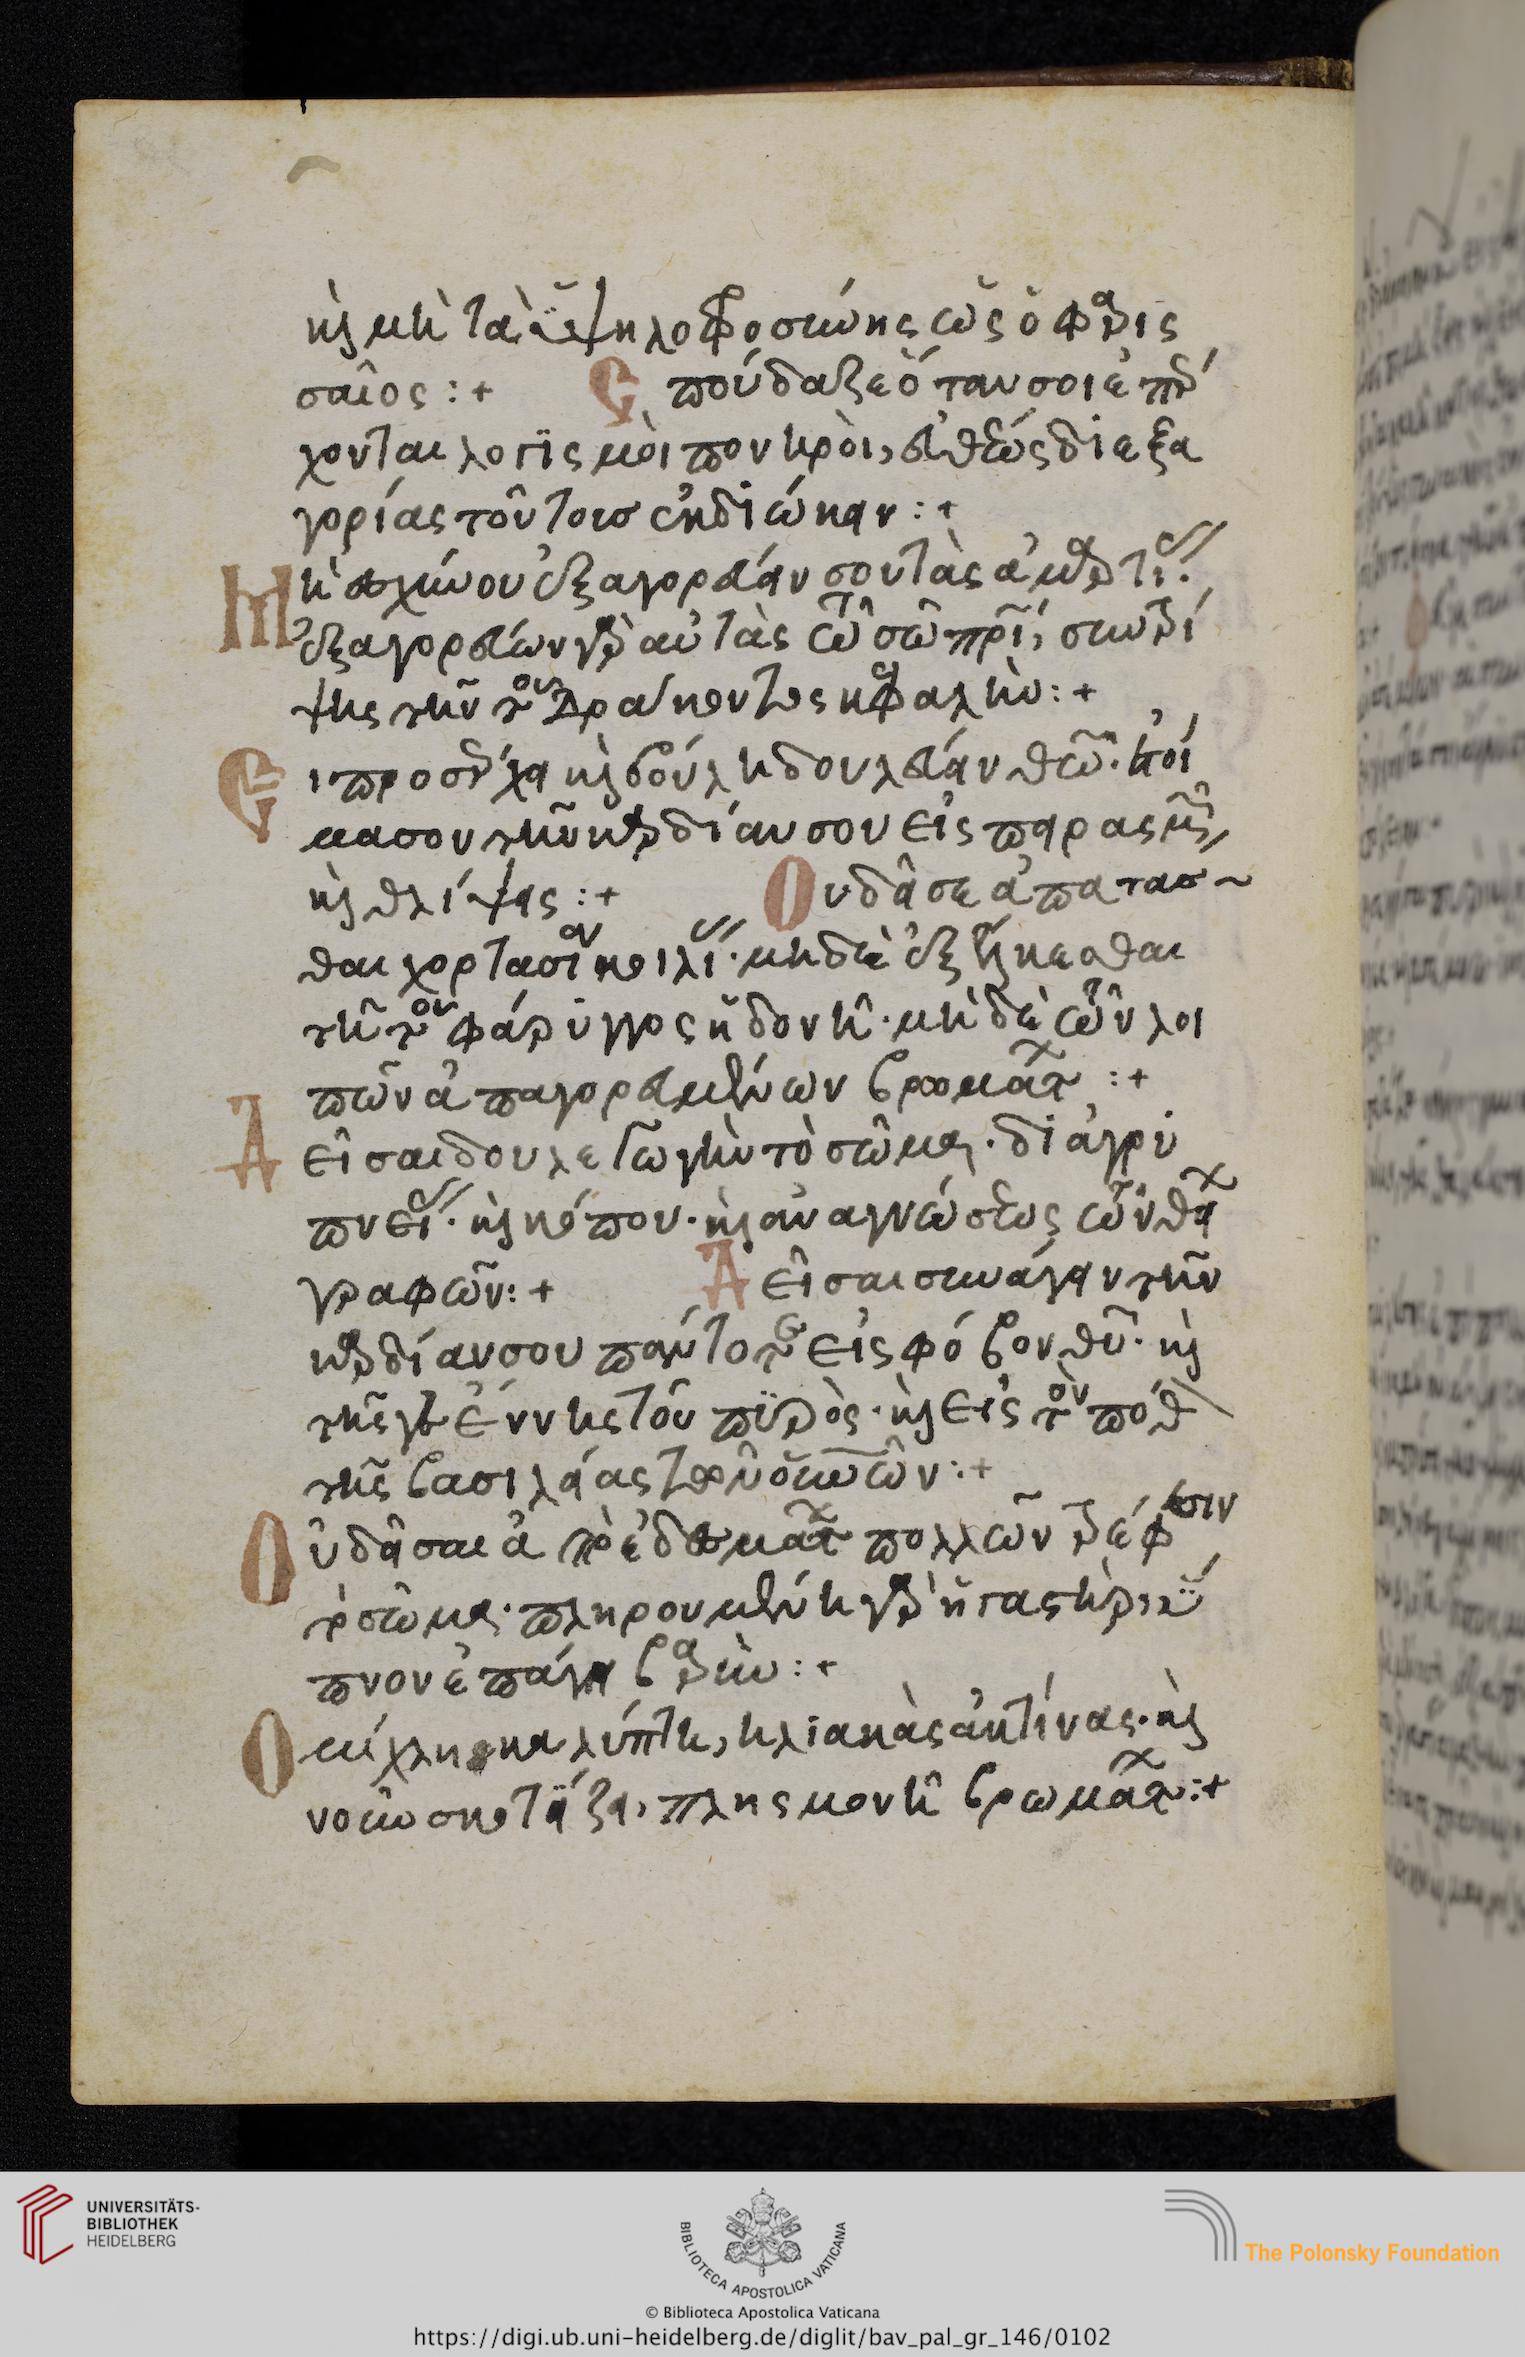 κὶ μὴ τὰ ὑψηλοφροσύνης ὡς ὁ φαρις
σαῖος :+ Σπούδαζε ὅταν σοι ἐπέρ
χονται λογϊςμοὶ πονηροὶ, εὐθέως δι ἐξα
γορίας τούτους ἐκδιώκειν :+
Μὴ αἰσχύνου ἐξαγορεύειν σου τὰς ἁμαρτίας.
ἐξαγορεύων γὰρ αὐτὰς τῶ σῶ πρι, συντρί
ψεις τὴν τοῦ δράκοντος κεφαλὴν :+
Εἰ προσέρχει κὶ βούλη δουλεύειν θῶ. ἑτοί
μασον τὴν καρδίαν σου εἰς πειρασμοὺς
κὶ θλίψεις :+ Οὐ δεῖ σε ἀπατᾶσ
θαι χορτασίαν κοιλίας. μηδὲ ἐξήκεσθαι
τῆ τοῦ φάρυγγος ἡδονῆ. μὴ δὲ τῶν λοι
πῶν ἀπαγορευμένων βρωμάτων :+
Ἀεὶ σαὶ δουλεταγωγεῖν τὸ σῶμα. δι ἀγρυ
πνείας. κὶ κόπου. κὶ ἀναγνώσεως τῶν θείων
γραφῶν :+ Ἀεὶ σαὶ συνάγειν τὴν
καρδίαν σου πάντοτε εἰς φόβον θυ. κὶ
τῆς γεέννης τοῦ πυρὸς. κὶ εἰς τὸν πόθον
τῆς βασιλείας τῶν οὐνῶν :+
Οὐ δεῖ σαι ἀπὸ ἐδεσμάτων πολλῶν τρέφειν
τὸ σῶμα. πληρουμένη γὰρ ἡ γαστὴρ, ὕ
πνον ἐπάγει βαρὺν :+
Ὁμίχλη καλύπτη, ἡλιακὰς ἀκτίνας. κὶ
νοῦν σκοτίζει, πλησμονὴ βρωμάτων :+
UNIVERSITÄTS-
BIBLIOTHEK
HEIDELBERG
BIBLIOTECA APOSTOLICA VATICANA
The Polonsky Foundation
© Biblioteca Apostolica Vaticana
https://digi.ub.uni-heidelberg.de/diglit/bav_pal_gr_146/0102